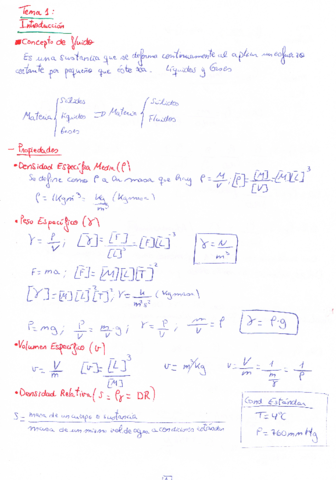 Tema 1:
Introducción
Concepto de fluido
Es una sustancia que se deforma continuamente al aplicar un esfuerzo
cortante por pequeño que éste sea. Líquidos y Gases
Materia { Sólidos Líquidos Gases ⇒ Materia { Sólidos Fluidos
- Propiedades
• Densidad Específica Media (ρ)
Se define como ρ a la masa que hay ρ = M/V [ρ] = [M]/[V] = [M][L]^-3
ρ = Kg m^-3 = Kg/m^3 (Kg masa)
• Peso Específico (γ)
γ = P/V; [γ] = [F]/[L]^3 = [F][L]^-3 γ = N/m^3
F = ma; [F] = [M][L][T]^-2
[γ] = [M][L]^-2[T]^-2; γ = (Kg masa)
P = mg; P/V = m/V g; γ = P/V; m/V = ρ γ = ρ·g
• Volumen Específico (v)
v = V/m [v] = [L]^3/[M] v = m^3/Kg v = V/m = 1/(m/V) = 1/ρ
• Densidad Relativa (S = ρr = DR)
S = masa de un cuerpo o sustancia
masa de un mismo vol. de agua a condiciones estándar
Cond. Estándar
T = 4°C
P = 760 mm Hg